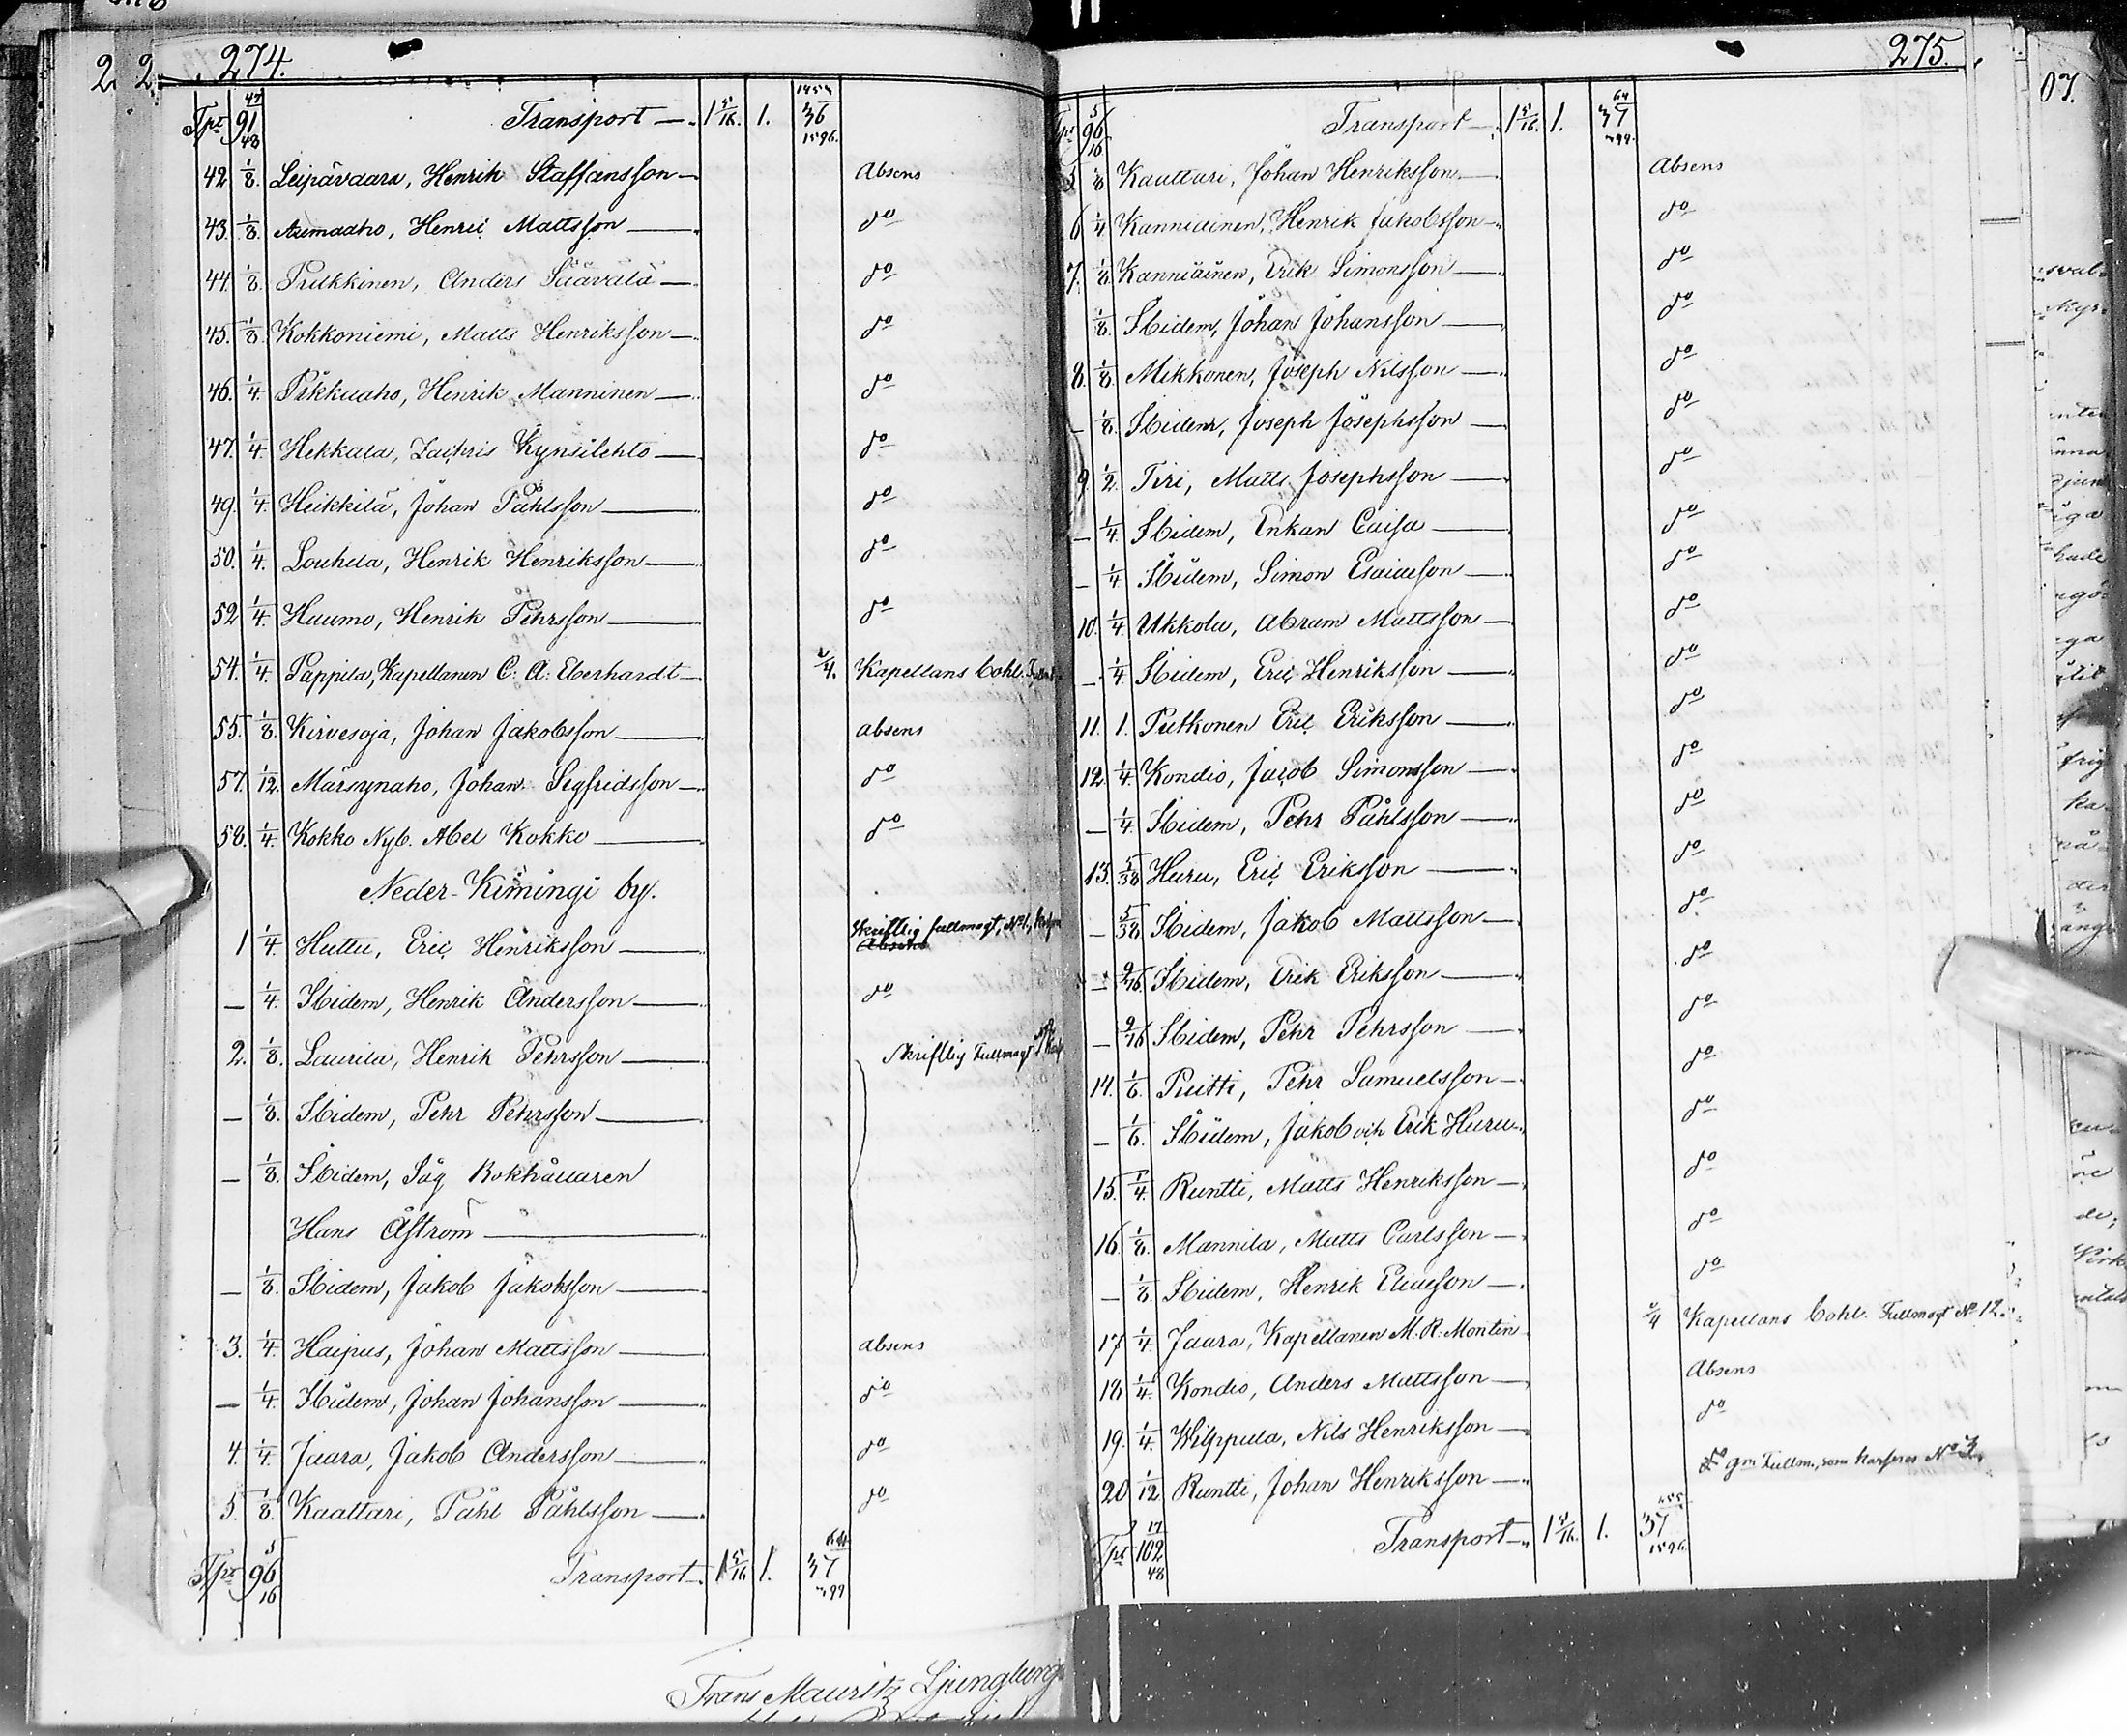 274.
Tpt 91 47/48 Transport 1 5/16. 1. 36
42 1/8. Leipävaara, Henrik Staffansson Absens
43. 1/8. Asemaaho, Henric Mattsson do
44. 1/8. Pulkkinen, Anders Säävälä do
45. 1/8. Kokkoniemi, Matts Henriksson do
46. 1/4. Pikkuaho, Henrik Manninen do
47. 1/4. Hekkala, Zachris Kynsilehto do
49. 1/4. Heikkilä, Johan Påhlsson do
50. 1/4. Louhela, Henrik Henriksson do
52 1/4. Huumo, Henrik Pehrsson do
54. 1/4. Pappila, Kapellanen C: A: Eberhardt 1/4. Kapellans Bohl.
55. 1/8. Kirvesoja, Johan Jakobsson absens
57. 1/12. Märsynaho, Johan Sigfridsson do
58. 1/4. Kokko Nyb. Abel Kokko do
Neder-Kimingi by.
1 1/4. Huttu, Eric Henriksson Skriftlig fullmagt, No 1,
Absens
— 1/4. Ibidem, Henrik Andersson do
2. 1/8. Laurila, Henrik Pehrsson Skriftlig Fullmagt
— 1/8. Ibidem, Pehr Pehrsson
— 1/8. Ibidem, Såg Bokhållaren
Hans Åström
— 1/8. Ibidem, Jakob Jakobsson
3. 1/4. Haipus, Johan Mattsson absens
— 1/4. Ibidem, Johan Johansson do
4. 1/4. Jaara, Jakob Andersson do
5. 1/8. Kaattari, Påhl Påhlsson do
Tpt 96 5/16 Transport 1 5/16 1. 37
Frans Mauritz Ljungberg
275.
Tpt 96 5/16 Transport 1 5/16. 1. 37
5 1/8 Kaattari, Johan Henriksson Absens
6 1/4 Kanniainen, Henrik Jakobsson do
7. 1/8. Kanniainen, Erik Simonsson do
1/8. Ibidem, Johan Johansson do
8. 1/8. Mikkonen, Joseph Nilsson do
— 1/8. Ibidem, Joseph Josephsson do
9. 1/2. Tiri, Matts Josephsson do
— 1/4. Ibidem, Enkan Caisa do
— 1/4 Ibidem, Simon Esaiasson do
10. 1/4. Ukkola, Abram Mattsson do
— 1/4 Ibidem, Eric Henriksson do
11. 1. Putkonen Eric Eriksson do
12. 1/4. Kondio, Jacob Simonsson do
— 1/4. Ibidem, Pehr Påhlsson do
13. 5/38 Huru, Eric Eriksson do
— 5/38 Ibidem, Jakob Mattsson do
— 9/16 Ibidem, Erik Eriksson do
— 9/16 Ibidem, Pehr Pehrsson do
14. 1/6. Puitti, Pehr Samuelsson do
— 1/6. Ibidem, Jakob och Erik Huru do
15. 1/4. Runtti, Matts Henriksson do
16. 1/8. Mannila, Matts Carlsson do
— 1/8. Ibidem, Henrik Eliasson do
17 1/4. Jaara, Kapellanen M. R. Montin 1/4 Kapellans Bohl. Fullmagt No 12.
18 1/4. Kondio, Anders Mattsson Absens
19. 1/4. Wilppula, Nils Henriksson do
20 1/12 Runtti, Johan Henriksson do gm Fullm., som
Tpt 102 17/48 Transport 1 5/16. 1. 37